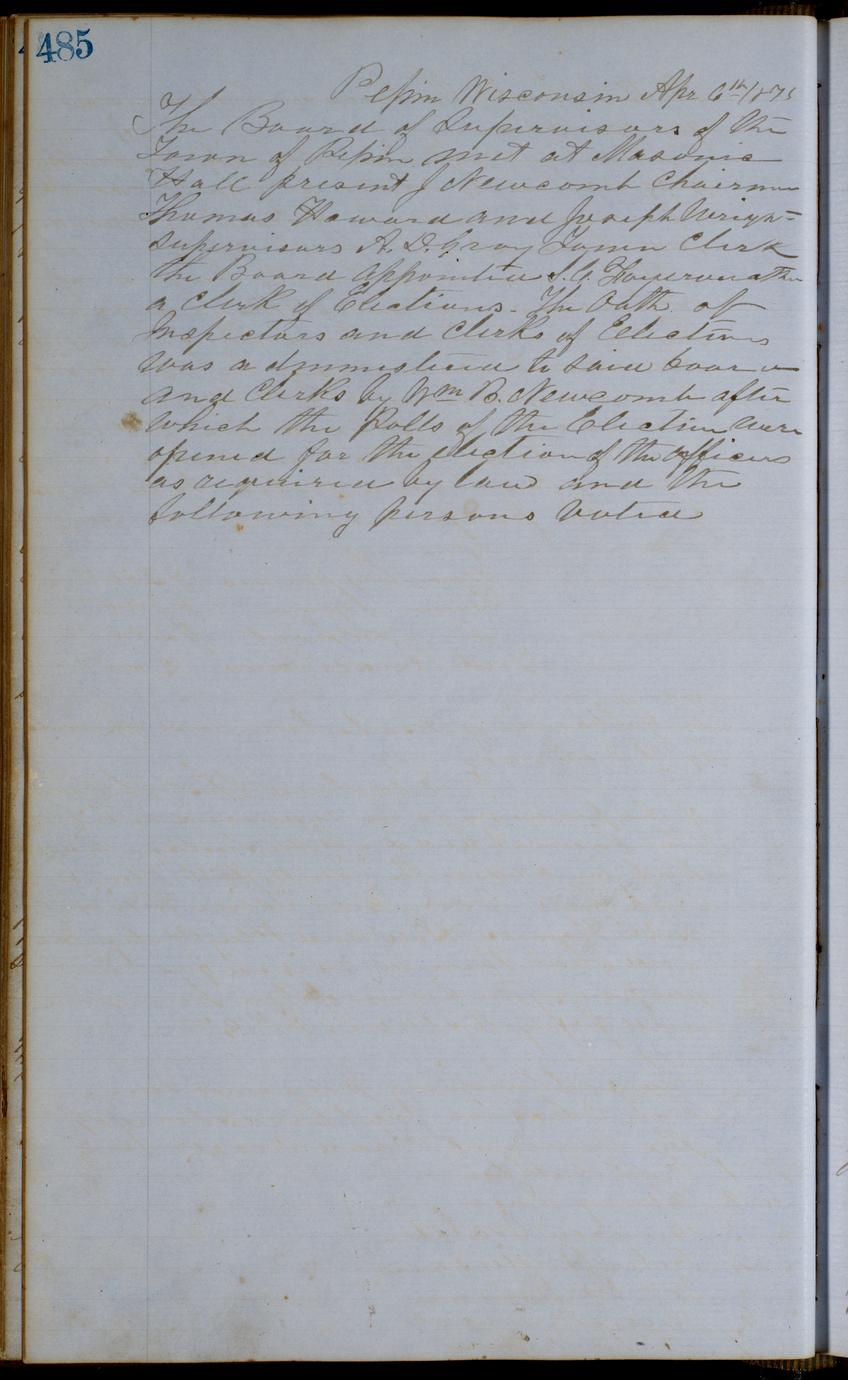 485
Pepin Wisconsin Apr 6th/1875
The Board of Supervisors of the
Town of Pepin met at Masonic
Hall present J Newcomb Chairman
Thomas Howard and Joseph Wright
Supervisors A. D. Gray Town Clerk
the Board appointed
a Clerk of Elections. The Oath of
Inspectors and Clerks of Elections
was administered to said Board
and Clerks by Wm B. Newcomb after
which the Polls of the Election were
opened for the election of the officers
as required by law and the
following persons voted